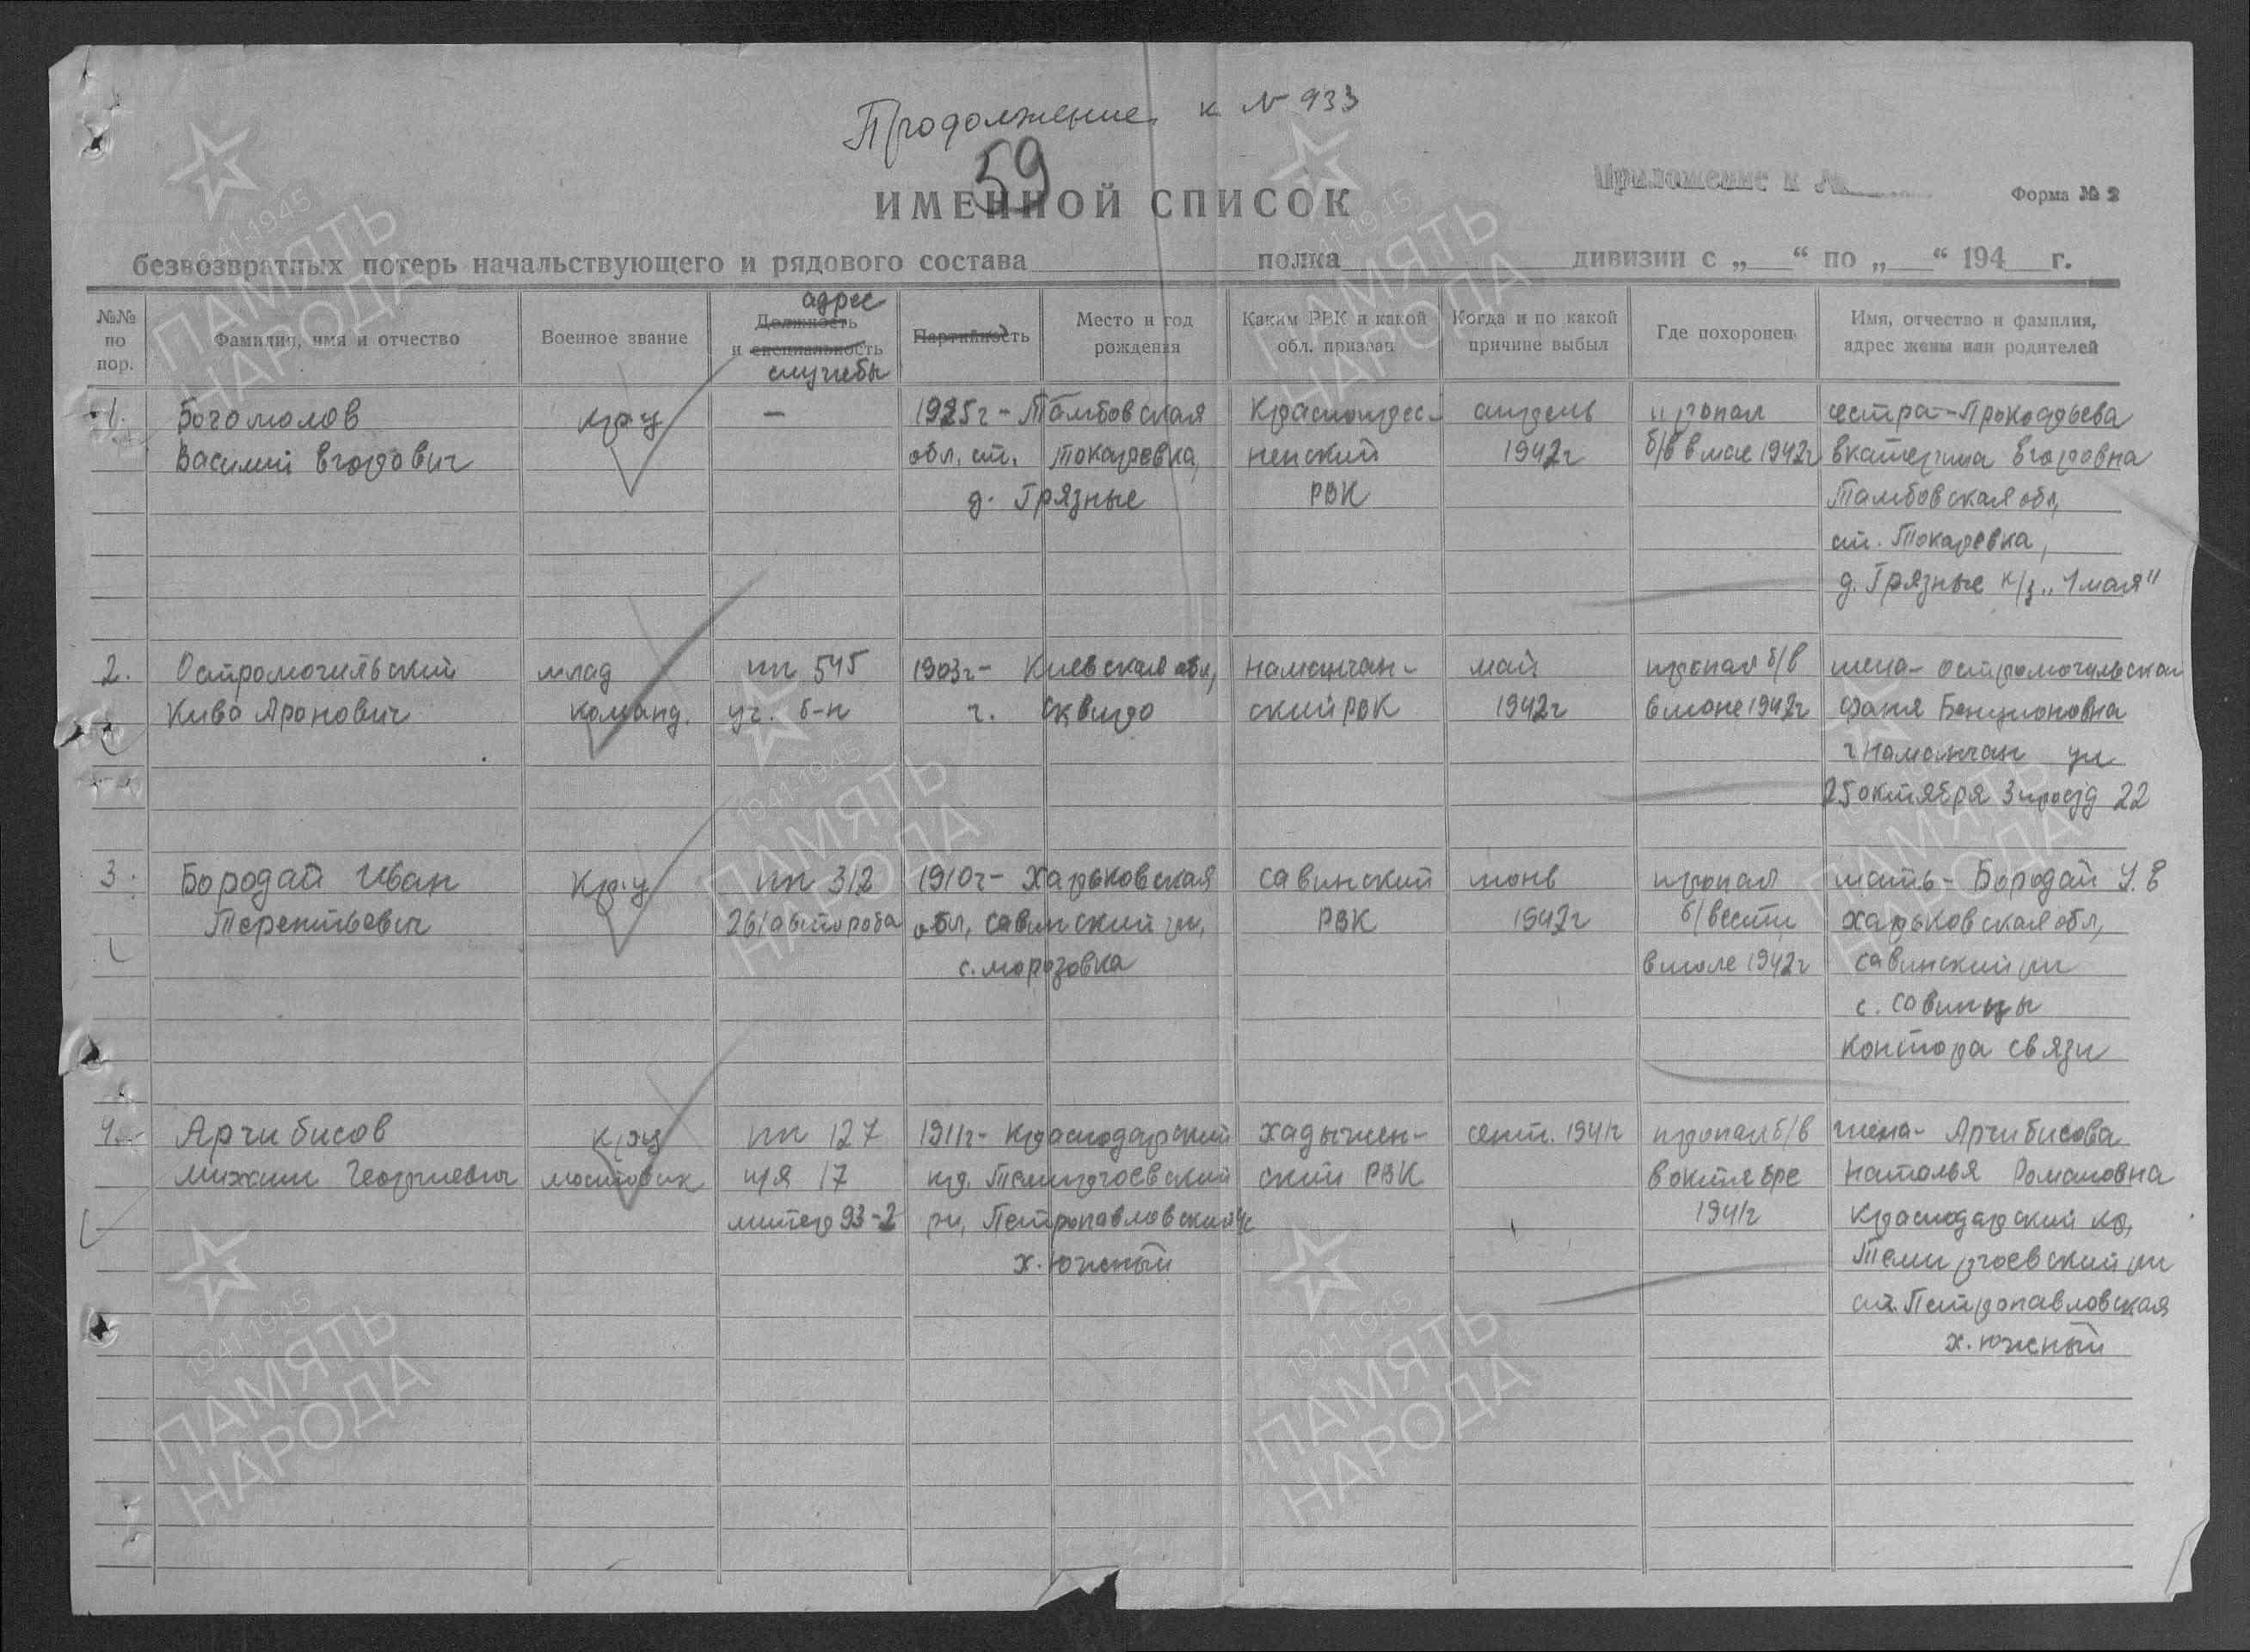 Продолжение к № 933
59
ИМЕННОЙ СПИСОК
Приложение к №
Форма № 2
безвозвратных потерь начальствующего и рядового состава полка дивизии с „ “ по „ “ 194 г.
№№ по пор.
Фамилия, имя и отчество
Военное звание
Должность и специальность
адрес службы
Партийность
Место и год рождения
Каким РВК и какой обл. призван
Когда и по какой причине выбыл
Где похоронен
Имя, отчество и фамилия, адрес жены или родителей
1. Богомолов кр-ц — 1925г - Тамбовская апрель пропал сестра - Прокодьева
Василий Егорович обл. ст. Токаревка, ненский 1942г б/в в мае 1942г Екатерина Егоровна
д. Грязные РВК Тамбовская обл,
ст. Токаревка,
д. Грязные к/з „1 мая"
2. Остромогильский млад пп 545 1903г - Киевская обл, Наманган- май пропал б/в жена - Остромогильская
Кива Аронович команд. уч. б-н г. Сквиро ский РВК 1942г в июне 1942г Фаня Бенционовна
г Наманган ул
25 октября 3 проезд 22
3. Бородай Иван кр-ц пп 312 1910г - Харьковская Савинский июнь пропал мать - Бородай У. Е
Терентьевич 261 обл, Савинский рн, РВК 1942г б/вести Харьковская обл,
с. Морозовка в июле 1942г Савинский рн
с. Савинцы
контора связи
4. Арчибисов кр-ц пп 127 1911г - Краснодарский Хадыжен- сент. 1941г пропал б/в жена - Арчибисова
Михаил Георгиевич мостовик п/я 17 кр. Темиргоевский ский РВК в октябре Наталья Романовна
литер 93-2 рн, Петропавловский с/с 1941г Краснодарский кр,
х. Южный Темиргоевский рн
ст. Петропавловская
х. Южный
1941-1945
ПАМЯТЬ
НАРОДА
1941-1945
ПАМЯТЬ
НАРОДА
1941-1945
ПАМЯТЬ
НАРОДА
1941-1945
ПАМЯТЬ
НАРОДА
1941-1945
ПАМЯТЬ
НАРОДА
1941-1945
ПАМЯТЬ
НАРОДА